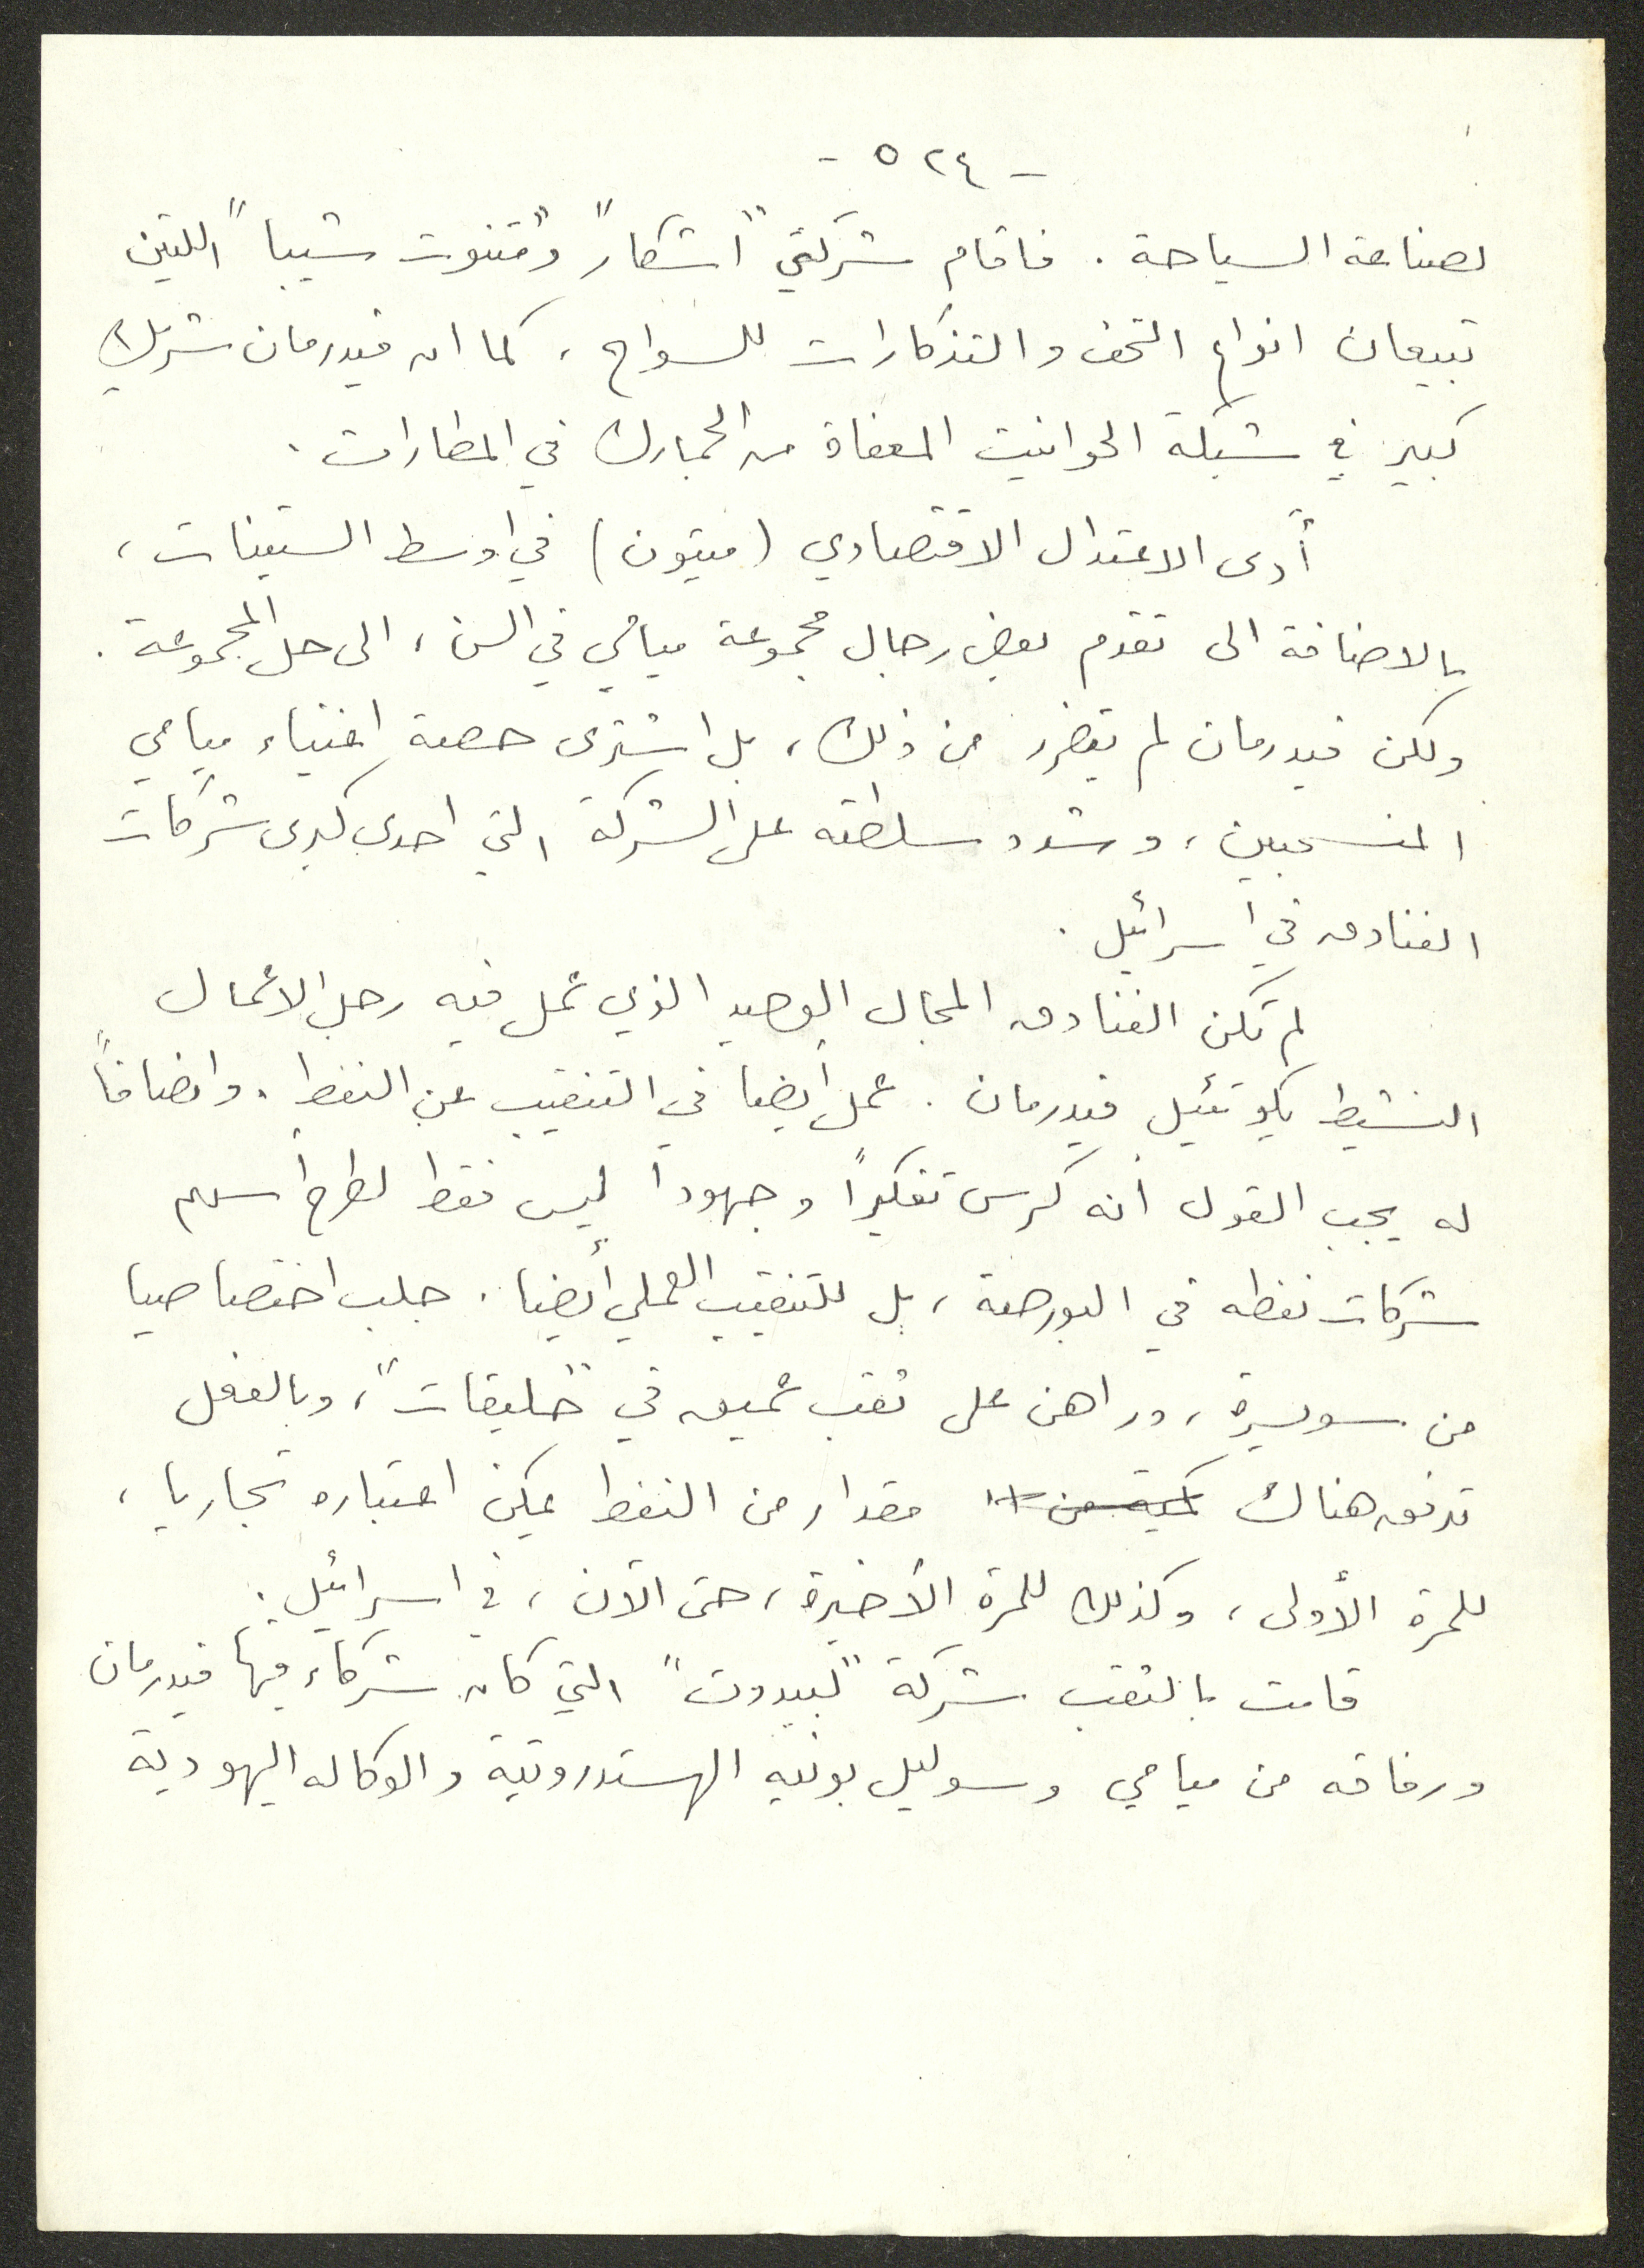 - ٥٢٤ -
لصناعة السياحة . فاقام شركتي "اشكار" و"متنوت شيبا" اللتين
تبيعان انواع التحف والتذكارات للسواح ، كما ان فيدرمان شريك
كبير في شبكة الحوانيت المعفاة من الجمارك في المطارات .
أدى الاعتدال الاقتصادي (ميتون) في اوسط الستينات ،
بالاضافة الى تقدم بعض رجال مجموعة ميامي في السن ، الى حل المجموعة .
ولكن فيدرمان لم يتضرر من ذلك ، بل اشترى حصة اغنياء ميامي
المنسحبين ، وشدد سلطته على الشركة التي احدى كبرى شركات
الفنادق في اسرائيل .
لم تكن الفنادق المجال الوحيد الذي عمل فيه رجل الاعمال
النشيط يكوتئيل فيدرمان . عمل أيضا في التنقيب عن النفط . وانصافاً
له يجب القول أنه كرس تفكيراً وجهودا ليس فقط لطرح أسهم
شركات نفطه في البورصة ، بل للتنقيب العملي أيضا . جلب اختصاصيا
من سويسرة ، وراهن على ثقب عميق في "حليقات" ، وبالفعل
تدفق هناك كمية من ال مقدار من النفط يمكن اعتباره تجاريا ،
للمرة الأولى ، وكذلك للمرة الأخيرة ، حتى الآن ، في اسرائيل .
قامت بالثقب شركة "لبيدوت" التي كان شركاء فيها فيدرمان
ورفاقه من ميامي وسوليل بونيه الهستدروتية والوكاله اليهودية